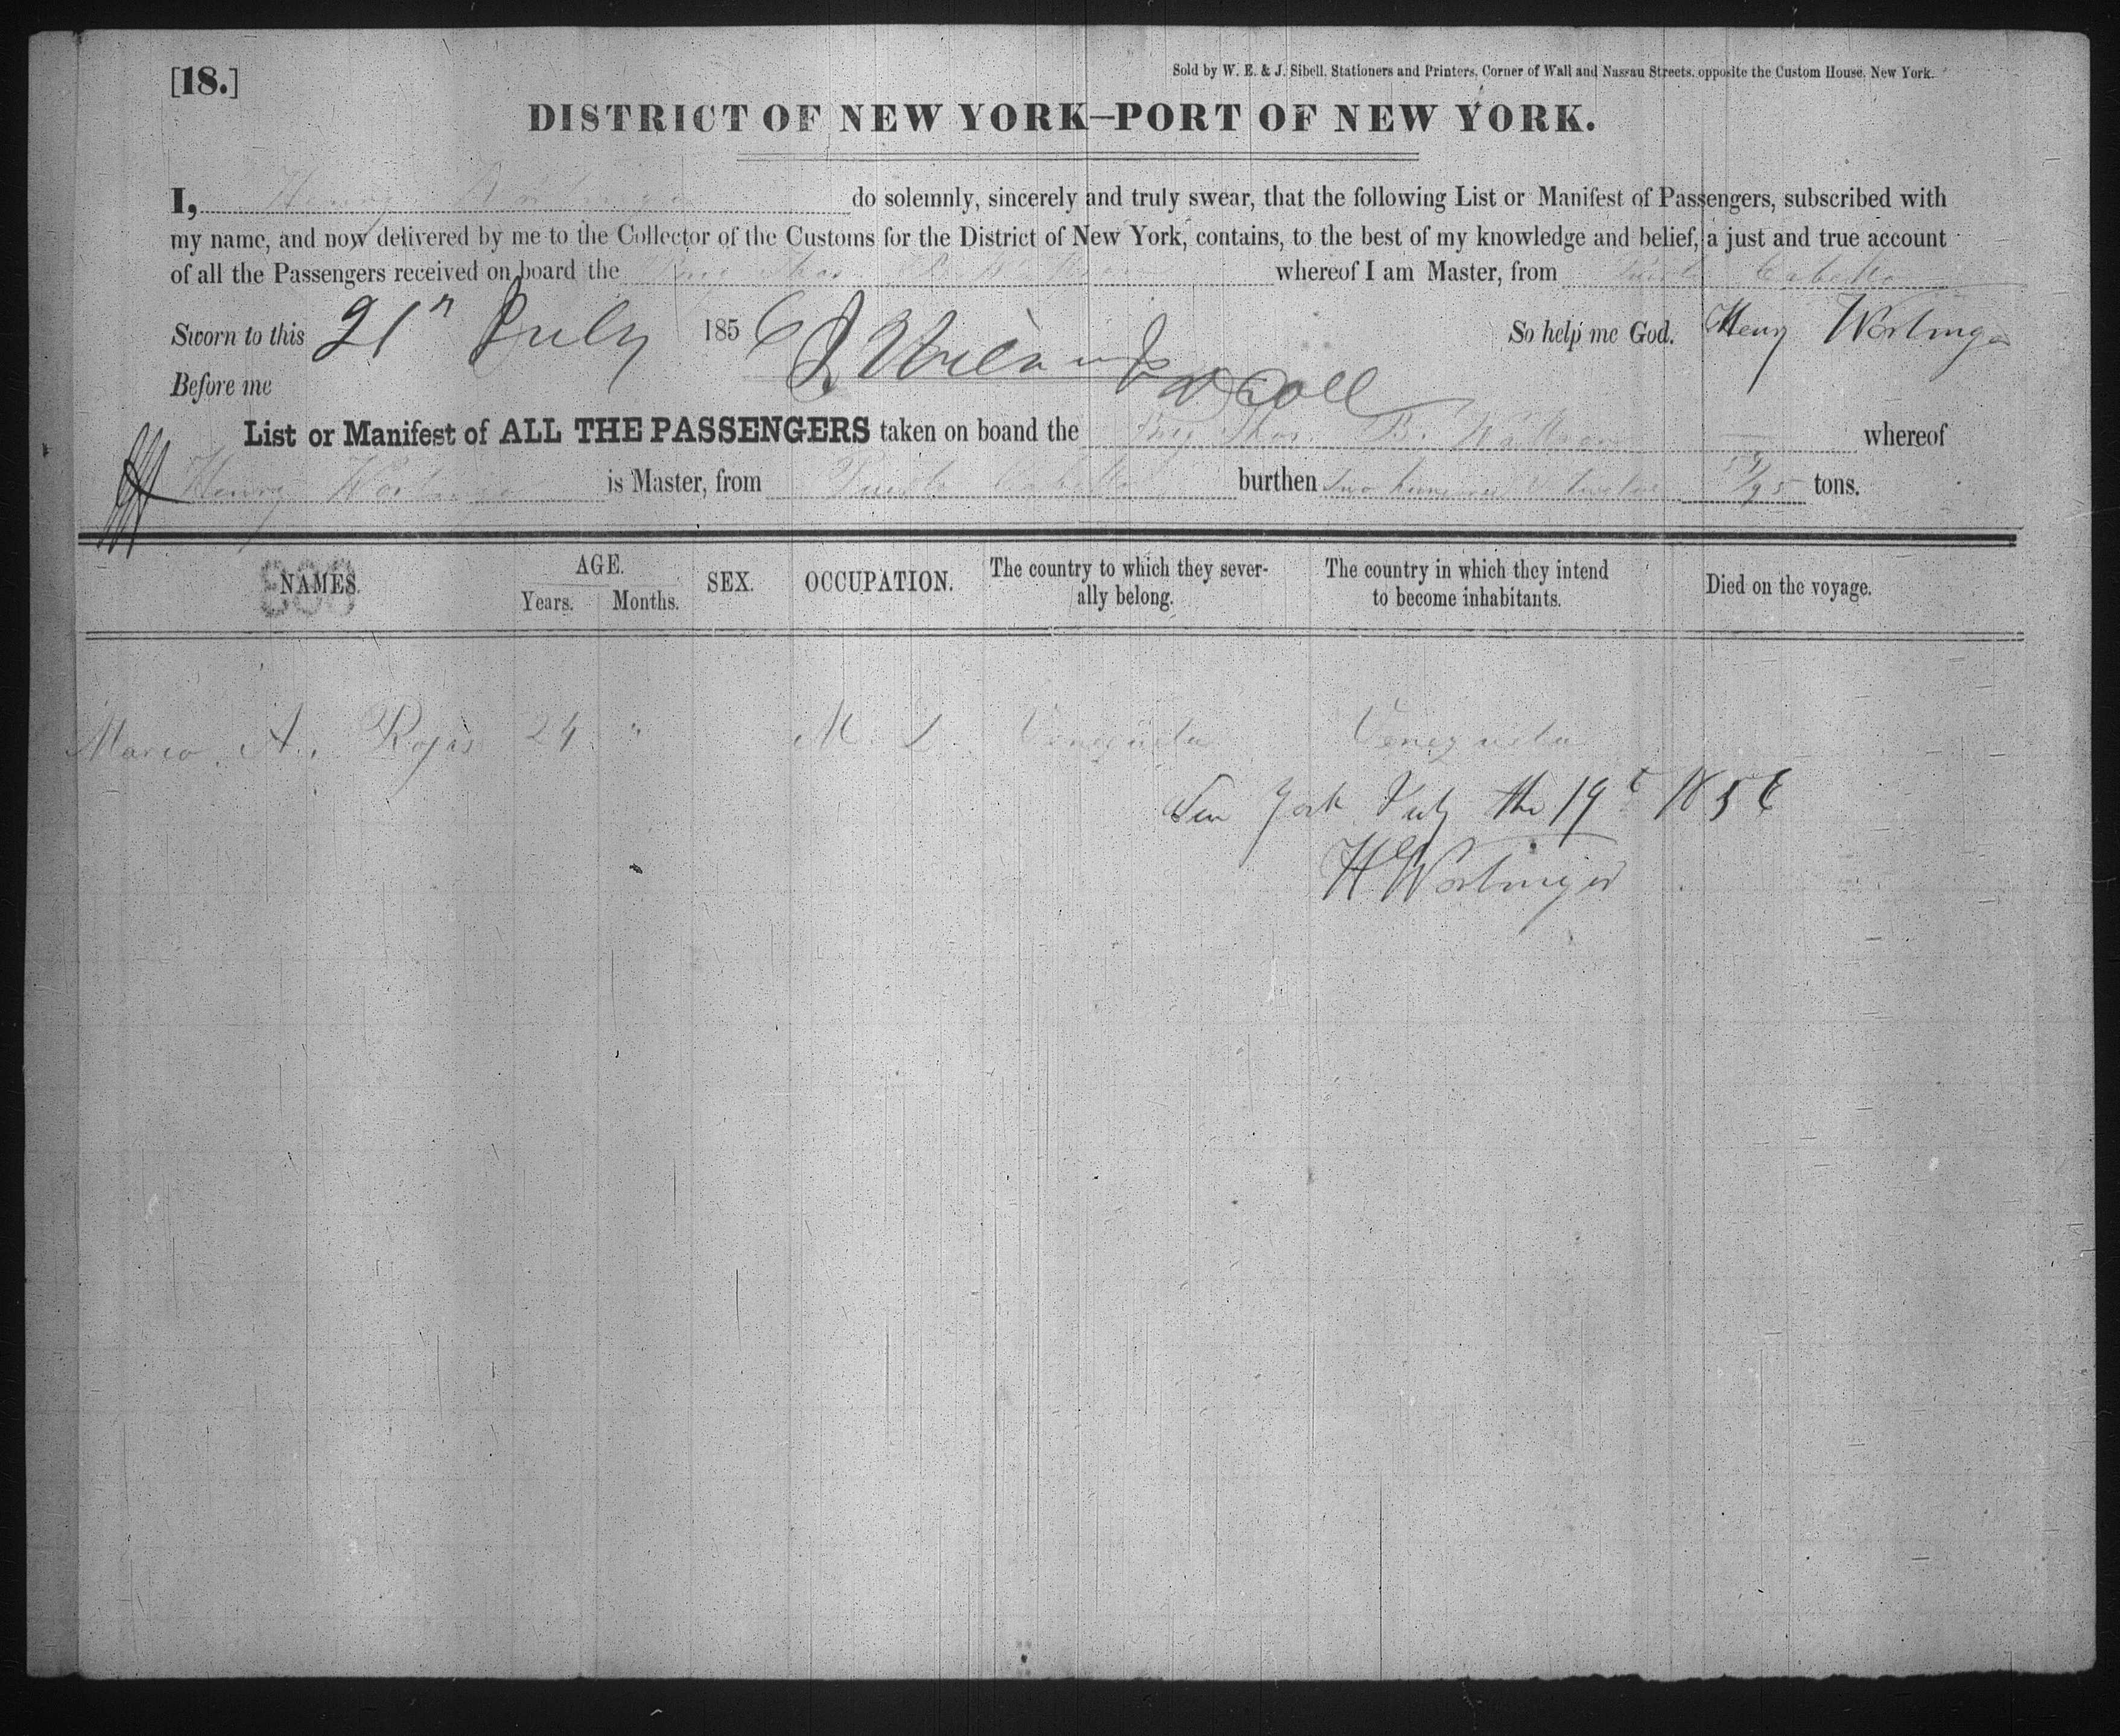 [18.]
Sold by W. E. & J. Sibell, Stationers and Printers, Corner of Wall and Nassau Streets, opposite the Custom House, New York.
DISTRICT OF NEW YORK—PORT OF NEW YORK.
I, Henry do solemnly, sincerely and truly swear, that the following List or Manifest of Passengers, subscribed with
my name, and now delivered by me to the Collector of the Customs for the District of New York, contains, to the best of my knowledge and belief, a just and true account
of all the Passengers received on board the Brig Thos. B. whereof I am Master, from Puerto Cabello
Sworn to this 21st July 1856 So help me God. Henry Wortinger
Before me
List or Manifest of ALL THE PASSENGERS taken on boand the Brig Thos. B. Wattson whereof
Henry Wortinger is Master, from Puerto Cabello burthen two hundred & twelve 54/95 tons.
NAMES. AGE. Years. Months. SEX. OCCUPATION. The country to which they severally belong. The country in which they intend to become inhabitants. Died on the voyage.
Marco A. Rojas 24 " M. D. Venezuela Venezuela
New York July the 19t 1856
H Wortinger